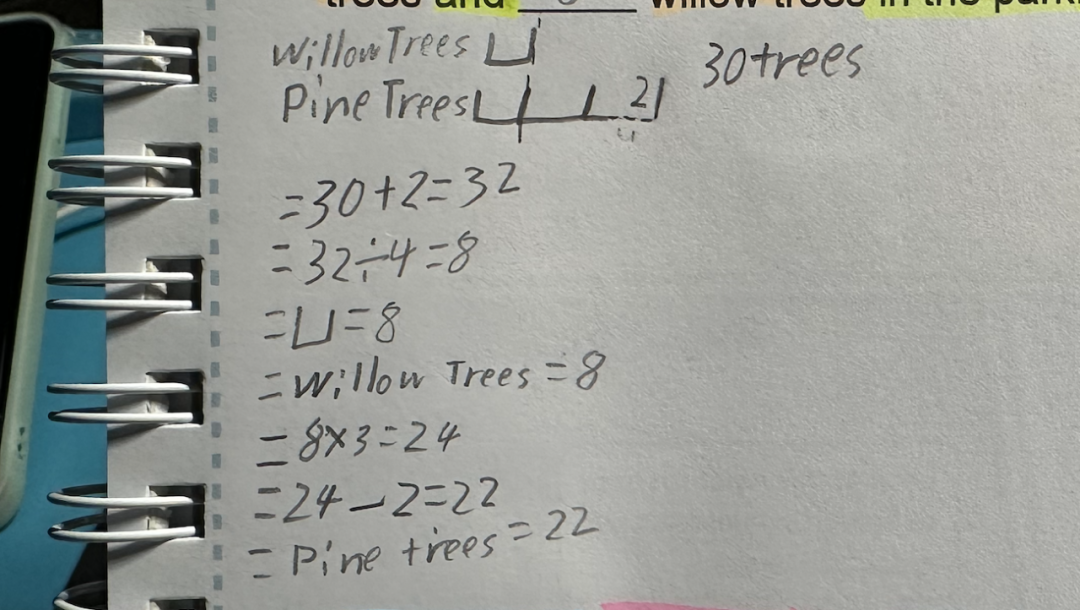 trees and willow trees in the park
Willow Trees
30 trees
Pine Trees 2
=30+2=32
=32÷4=8
=⊔=8
=Willow Trees=8
=8×3=24
=24-2=22
=Pine trees=22